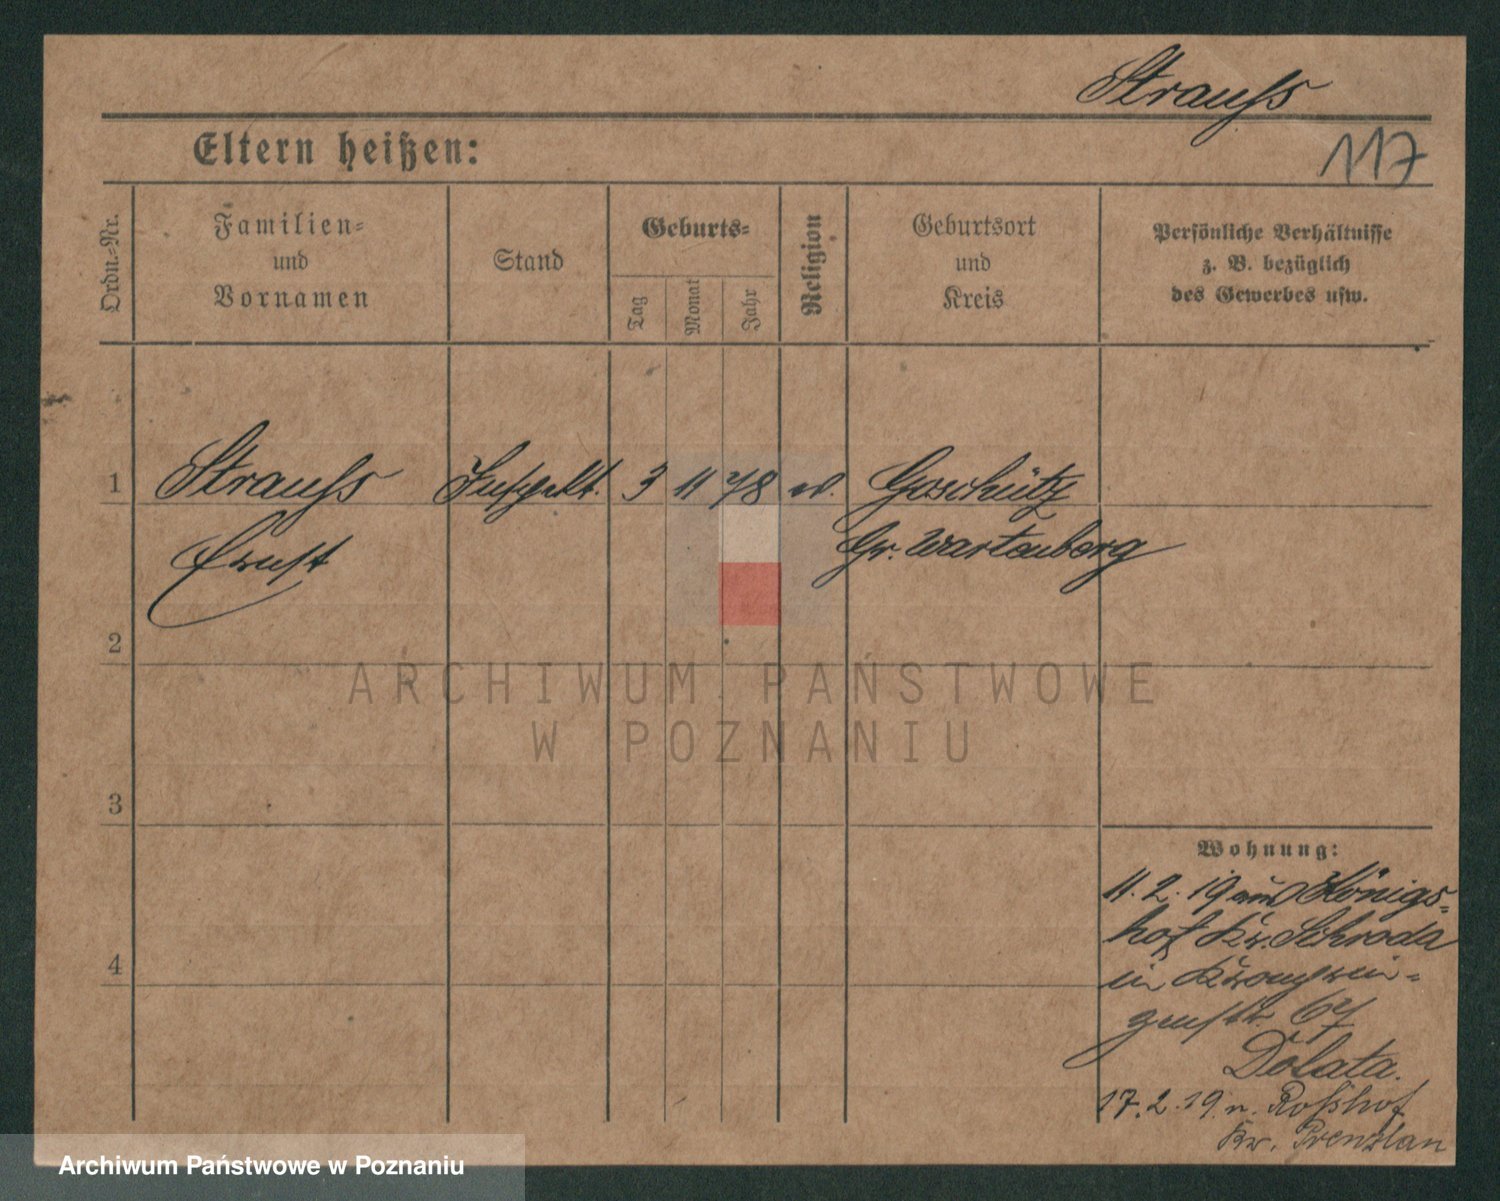 Strauß
Eltern heißen:
117
Ordn.-Nr.
Familien-
und
Vornamen
Stand
Geburts-
Tag
Monat
Jahr
Religion
Geburtsort
und
Kreis
Persönliche Verhältnisse
z. B. bezüglich
des Gewerbes usw.
1
Strauß
3 11 78
Goschütz
Ernst
Gr. Wartenberg
2
ARCHIWUM PAŃSTWOWE
W POZNANIU
3
Wohnung:
11.2.19 aus Königs-
hof Kr. Schroda
4
in Kronprin-
zenstr. 67
Dolata.
17.2.19. n. Roßhof
Kr. Prenzlau
Archiwum Państwowe w Poznaniu